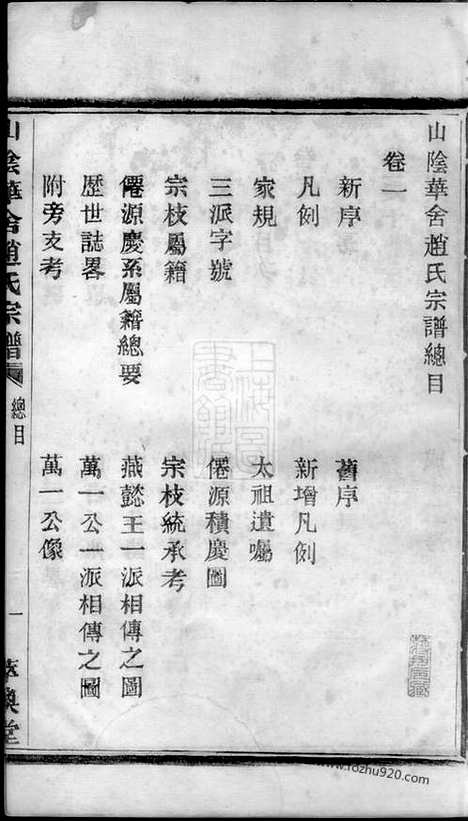 山陰華舍趙氏宗譜總目
卷一
新序 舊序
凡例 新增凡例
家規 太祖遺囑
三派字號 僊源積慶圖
宗枝屬籍 宗枝統承考
僊源慶系屬籍總要 燕懿王一派相傳之圖
歷世誌畧 萬一公一派相傳之圖
附旁支考 萬一公像
山陰華舍趙氏宗譜 總目 一 萃渙堂
上海圖書館藏
www.rozhu920.com